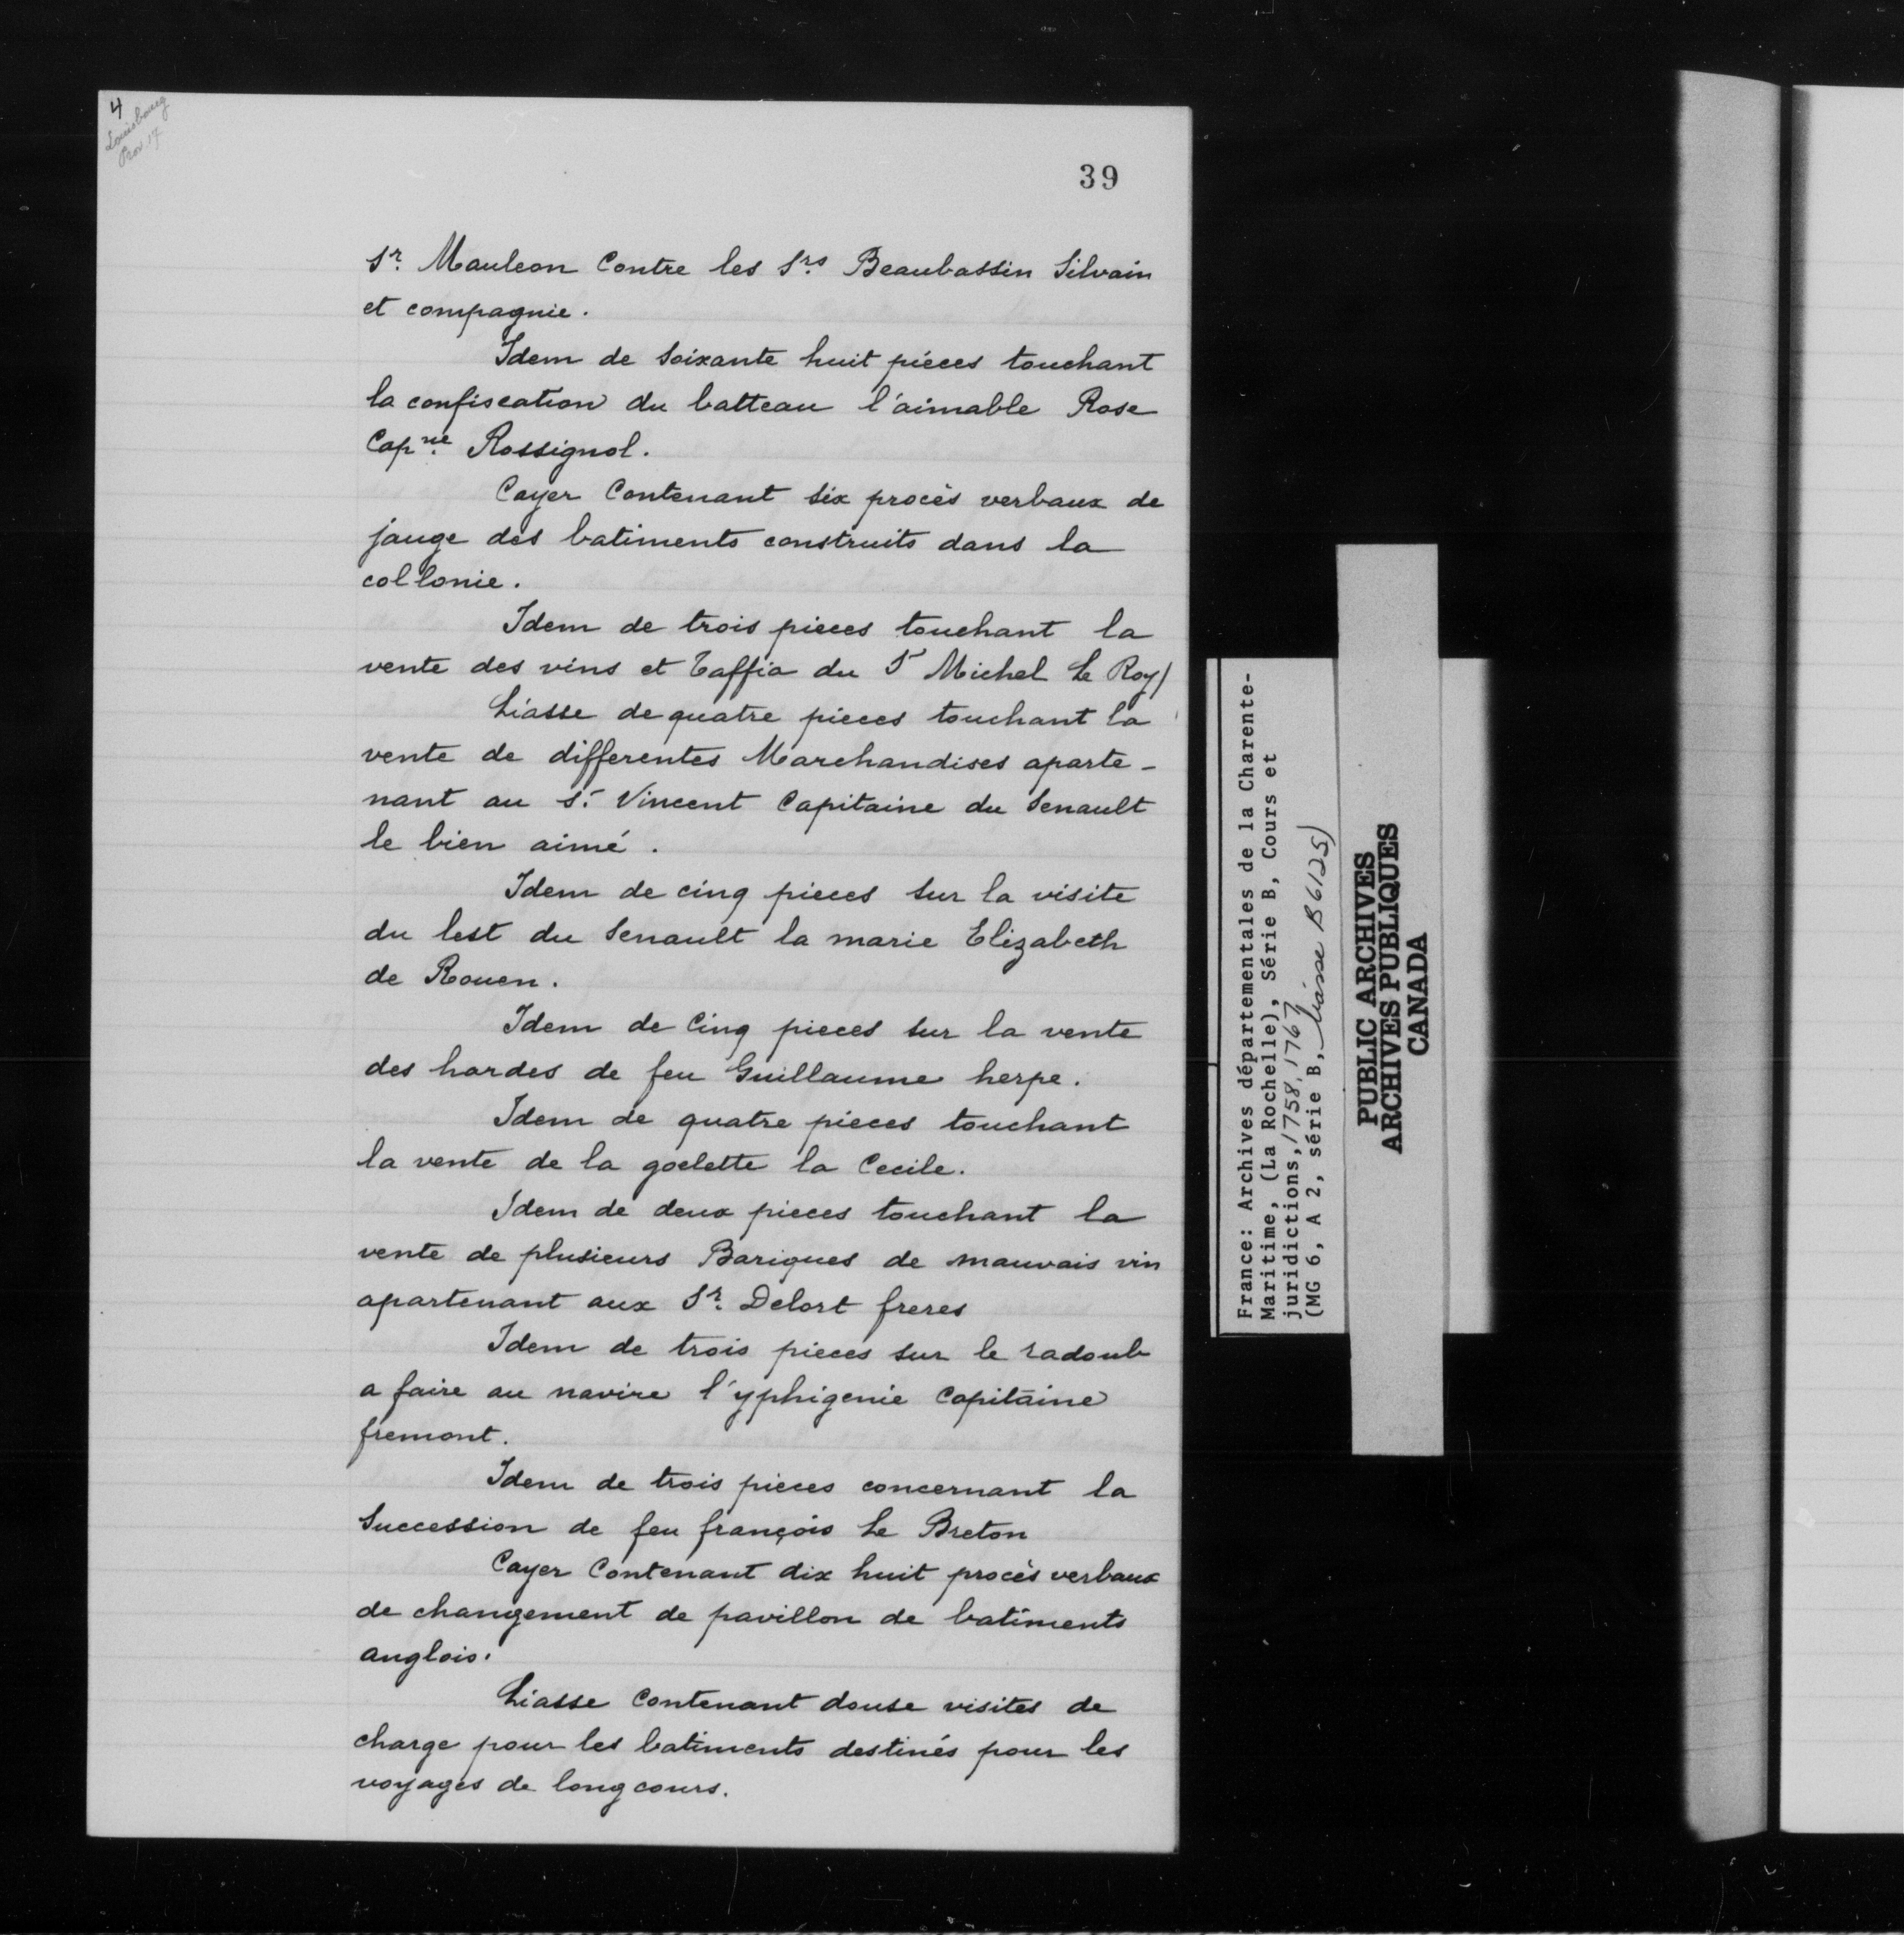 4
Louisbourg
Prov 17
39
Sr. Mauleon Contre les Srs. Beaubassin Silvain
et compagnie.
Idem de soixante huit piéces touchant
la confiscation du batteau l'aimable Rose
Capne. Rossignol.
Cayer Contenant six procès verbaux de
jauge des batiments construits dans la
collonie.
Idem de trois pieces touchant la
vente des vins et taffia du Sr Michel Le Roy/
Liasse de quatre pieces touchant la
vente de differentes Marchandises aparte-
nant au Sr. Vincent Capitaine du Senault
le bien aimé.
Idem de cinq pieces sur la visite
du lest du Senault la marie Elizabeth
de Rouen.
Idem de Cinq pieces sur la vente
des hardes de feu Guillaume herpe.
Idem de quatre pieces touchant
la vente de la goelette la Cecile.
Idem de deux pieces touchant la
vente de plusieurs Bariques de mauvais vin
apartenant aux Sr. Delort freres
Idem de trois pieces sur le radoub
a faire au navire l'yphigenie Capitaine
fremont.
Idem de trois pieces concernant la
Succession de feu françois Le Breton
Cayer Contenant dix huit procès verbaux
de changement de pavillon de batiments
anglois.
Liasse Contenant douse visites de
charge pour les batiments destinés pour les
voyages de long cours.
France: Archives départementales de la Charente-
Maritime, (La Rochelle), Série B, Cours et
juridictions, 1758, 1767
(MG 6, A 2, série B, liasse B6125)
PUBLIC ARCHIVES
ARCHIVES PUBLIQUES
CANADA